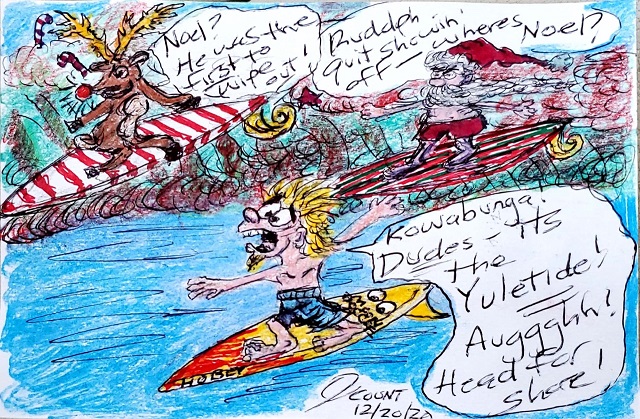 Noel?
He was the
first to
wipe out!
Rudolph
quit showin'
off — wheres Noel?
Kowabunga!
Dudes — its
the
Yuletide!
Auggghh!
Head for
shore!
HOBEY
COUNT
12/20/20